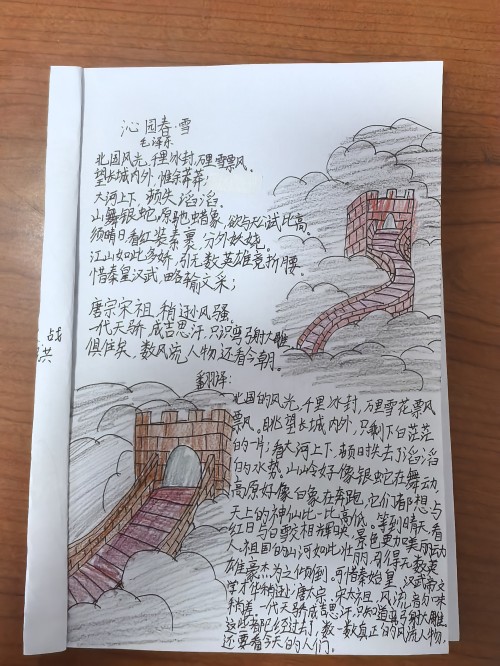 沁园春·雪
毛泽东
北国风光,千里冰封,万里雪票风。
望长城内外,惟余莽莽;
大河上下,顿失滔滔。
山舞银蛇,原驰蜡象,欲与天公试比高。
须晴日,看红装素裹,分外妖娆。
江山如此多娇,引无数英雄竞折腰。
惜秦皇汉武,略输文采;
唐宗宋祖,稍逊风骚。
一代天骄,成吉思汗,只识弯弓射大雕。
俱往矣,数风流人物,还看今朝。
战
洪
翻译:
北国的风光,千里冰封,万里雪花飘
飘。眺望长城内外,只剩下白茫茫
的一片;看大河上下,顿时失去了滔滔
的水势。山岭好像银蛇在舞动,
高原好像白象在奔跑,它们都想与
天上的神仙比一比高低。等到晴天,看
红日与白雪交相辉映,景色更加美丽动
人。祖国的山河如此壮丽,引得无数英
雄豪杰为之倾倒。可惜秦始皇、汉武帝文
学才华稍逊;唐太宗、宋太祖,风流
稍差。一代天骄成吉思汗,只知道弯弓射大雕。
这些都已经过去了,数一数真正的风流人物,
还要看今天的人们。